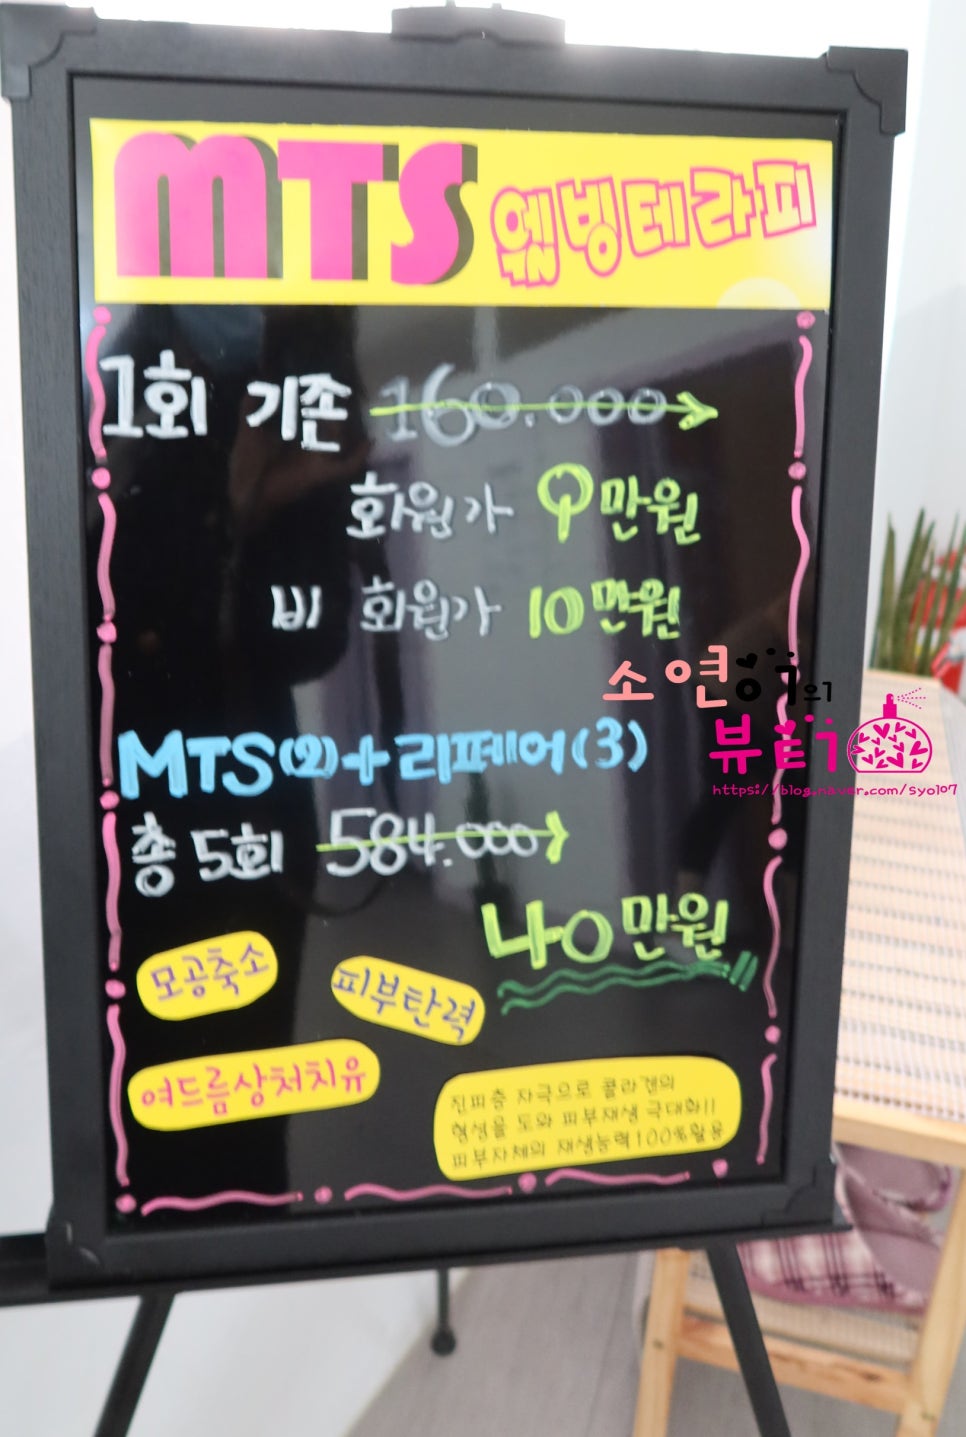 MTS 웰빙테라피
1회 기존 160.000
회원가 9만원
비 회원가 10만원
소연이의
뷰티
https://blog.naver.com/syo107
MTS(2)+리페어(3)
총 5회 584.000
40만원
모공축소
피부탄력
여드름상처치유
진피층 자극으로 콜라겐의
형성을 도와 피부재생 극대화!!
피부자체의 재생능력100%활용